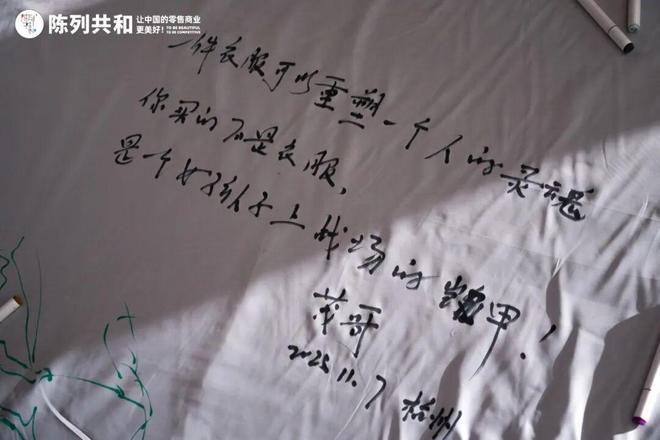 陈列共和
让中国的零售商业
更美好!
TO BE BEAUTIFUL
TO BE COMPETITIVE
一件衣服可以重塑一个人的灵魂
你买的不是衣服,
是一个女孩子上战场的铠甲!
哥
2025.11.7 杭州